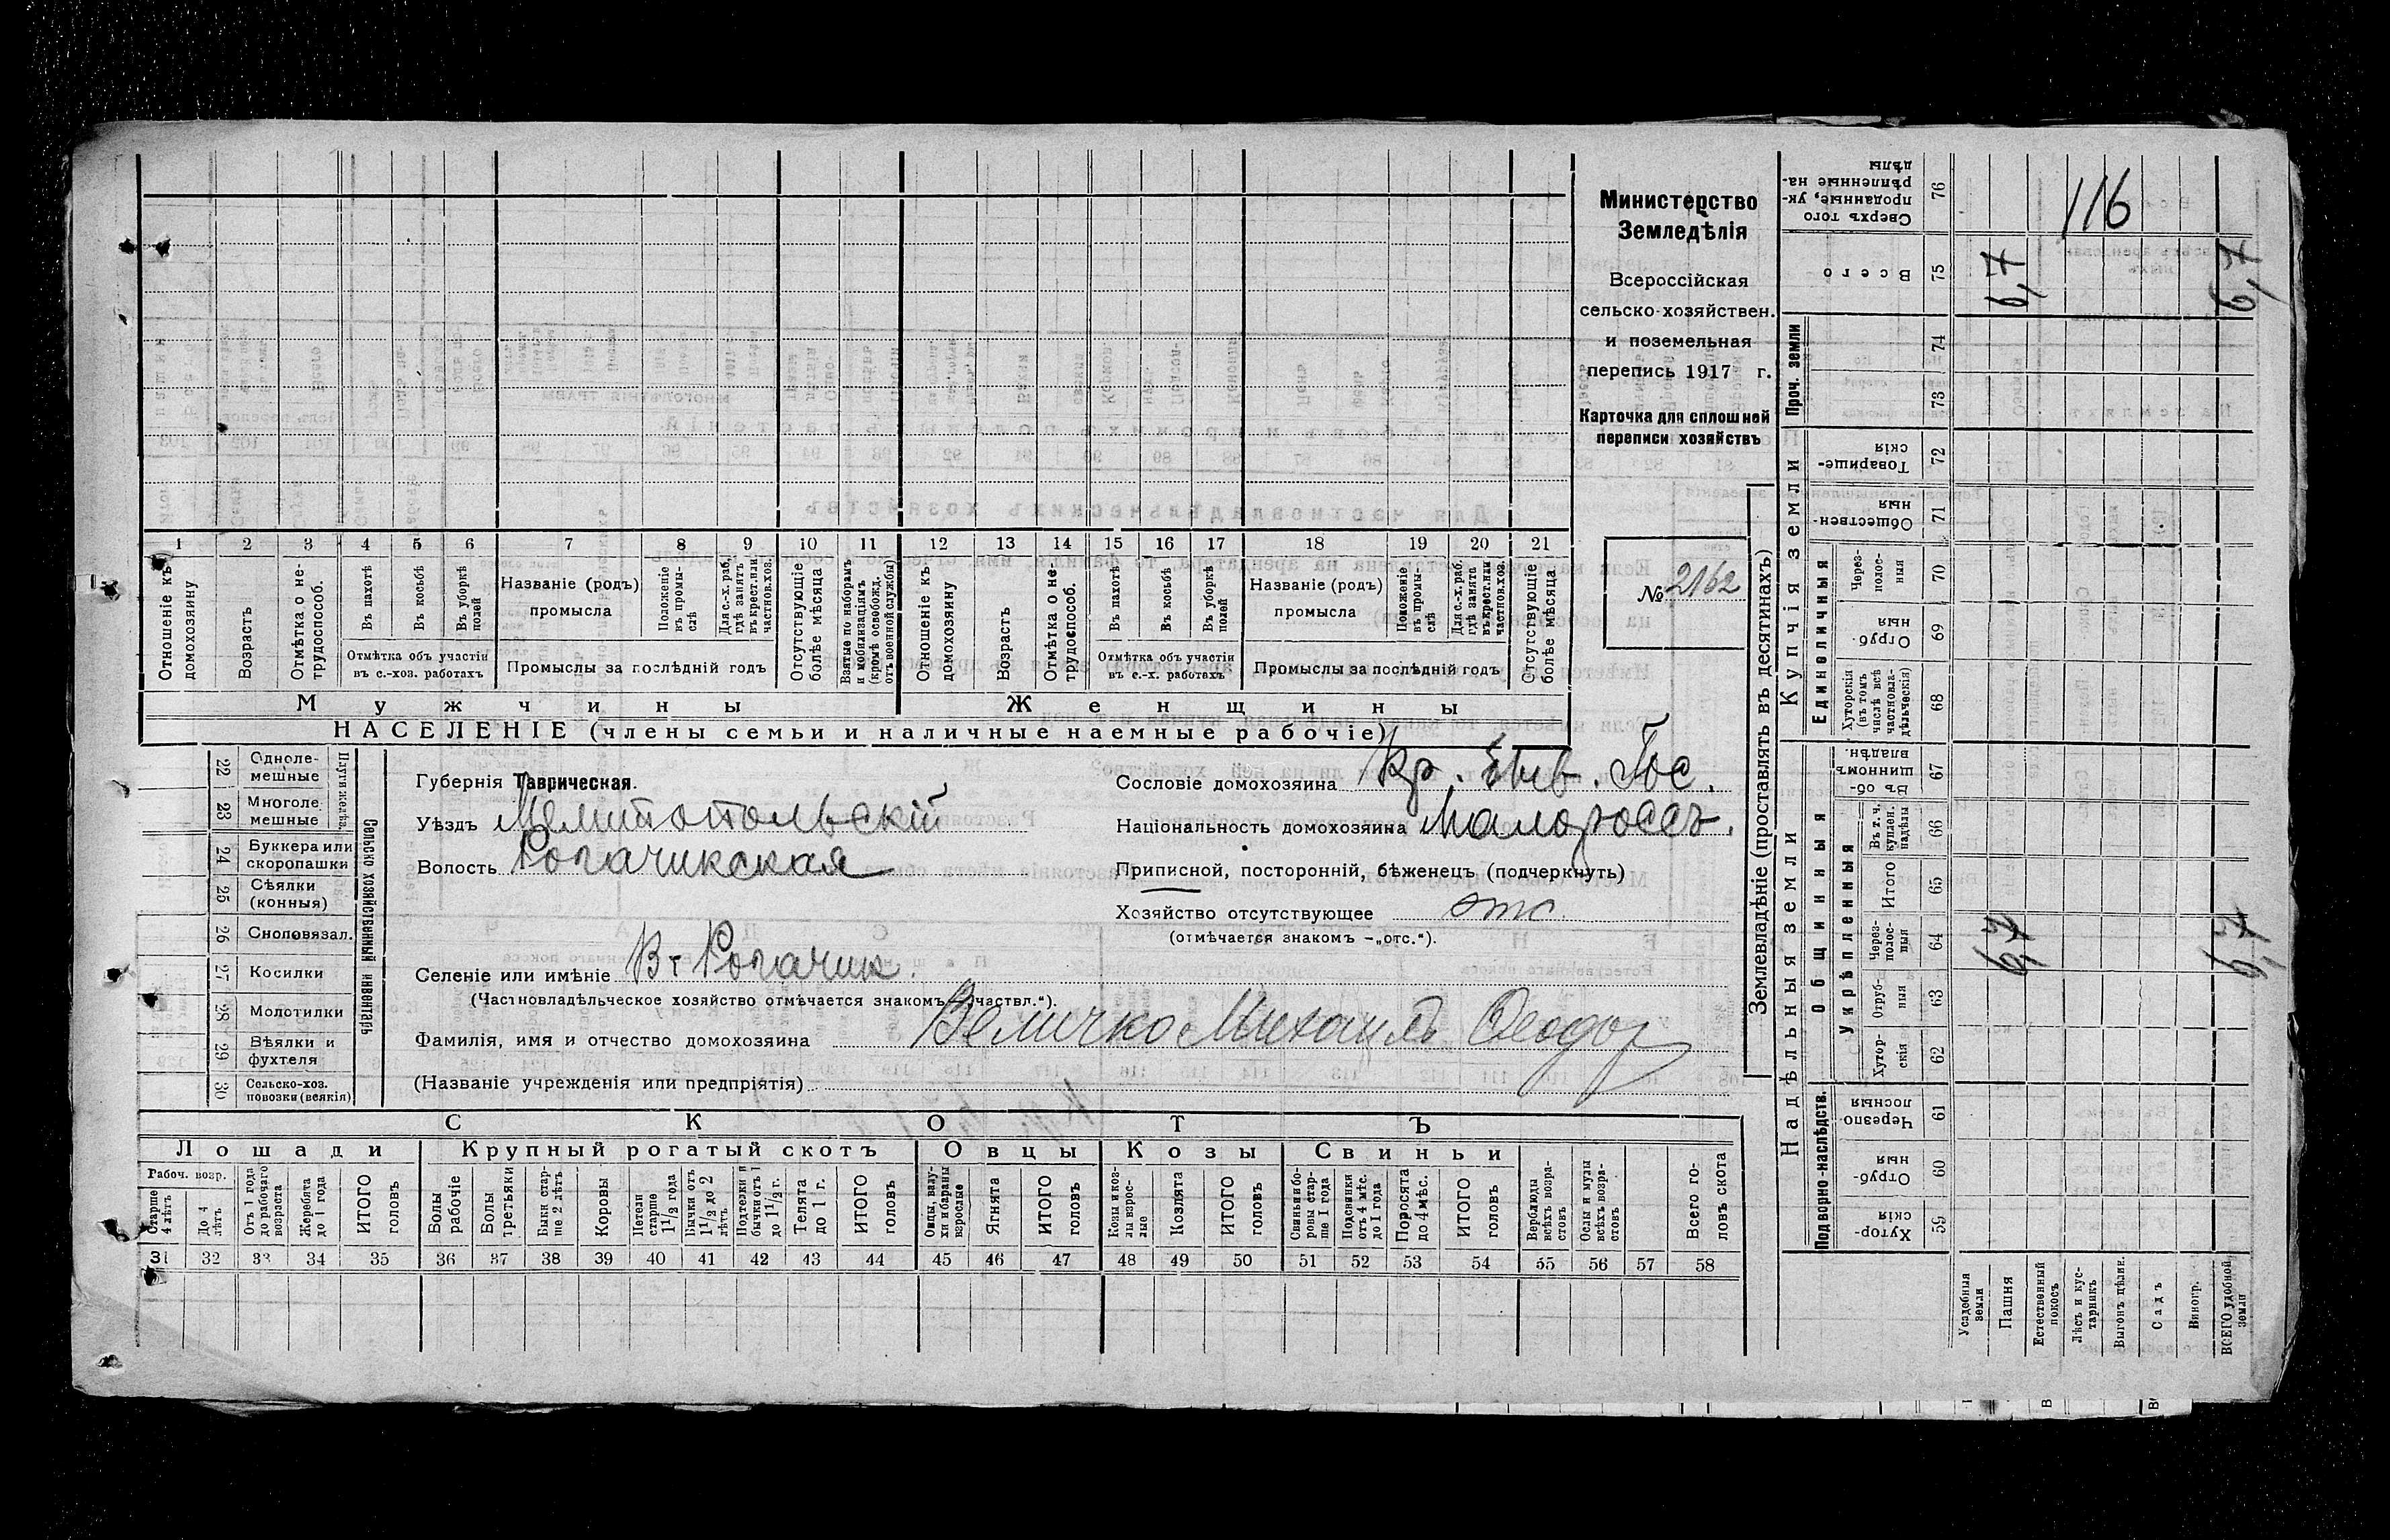 Министерство
Земледѣлія
Всероссійская
сельско-хозяйствен.
и поземельная
перепись 1917 г.
Карточка для сплошной
переписи хозяйствъ
№ 2162
116
1 2 3 4 5 6 7 8 9 10 11 12 13 14 15 16 17 18 19 20 21
Отношеніе къ домохозяину
Возрастъ
Отмѣтка о нетрудоспособ.
Въ пахотѣ
Въ косьбѣ
Въ уборкѣ полей
Отмѣтка объ участіи въ с.-хоз. работахъ
Названіе (родъ) промысла
Положеніе въ промыслѣ
Для с.-х. раб. гдѣ занятъ въ крест. или частнов. хоз.
Промыслы за послѣдній годъ
Отсутствующіе болѣе мѣсяца
Взятые по наборамъ и мобилизаціямъ (кромѣ освобожд. отъ военной службы)
Отношеніе къ домохозяину
Возрастъ
Отмѣтка о нетрудоспособ.
Въ пахотѣ
Въ косьбѣ
Въ уборкѣ полей
Отмѣтка объ участіи въ с.-х. работахъ
Названіе (родъ) промысла
Положеніе въ промыслѣ
Для с.-х. раб. гдѣ занята въ крест. или частнов. хоз.
Промыслы за послѣдній годъ
Отсутствующіе болѣе мѣсяца
Мужчины Женщины
НАСЕЛЕНІЕ (члены семьи и наличные наемные рабочіе)
22 Однолемешные
23 Многолемешные
Плуги желѣз.
24 Буккера или скоропашки
25 Сѣялки (конныя)
26 Сноповязал.
27 Косилки
28 Молотилки
29 Вѣялки и фухтеля
30 Сельско-хоз. повозки (всякія)
Сельско хозяйственный инвентарь
Губернія Таврическая.
Уѣздъ Мелитопольскій
Волость Рогачикская
Селеніе или имѣніе В. Рогачик.
(Частновладѣльческое хозяйство отмѣчается знакомъ „участвл.“).
Фамилія, имя и отчество домохозяина Величко Михаилъ Ѳеодор
(Названіе учрежденія или предпріятія)
Сословіе домохозяина Кр. Гос.
Національность домохозяина Малороссъ.
Приписной, посторонній, бѣженецъ (подчеркнуть)
Хозяйство отсутствующее отс.
(отмѣчается знакомъ —„отс.“).
СКОТЪ
Лошади Крупный рогатый скотъ Овцы Козы Свиньи
Рабоч. возр.
Старше 4 лѣтъ
До 4 лѣтъ
Отъ 1 года до рабочаго возраста
Жеребята до 1 года
ИТОГО головъ
Волы рабочіе
Волы третьяки
Быки старше 2 лѣтъ
Коровы
Нетели старше 1 1/2 года
Бычки отъ 1 1/2 до 2 лѣтъ
Подтелки и бычки отъ 1 до 1 1/2 г.
Телята до 1 г.
ИТОГО головъ
Овцы, валухи и бараны взрослые
Ягнята
ИТОГО головъ
Козы и козлы взрослые
Козлята
ИТОГО головъ
Свиньи и боровы старше 1 года
Подсвинки отъ 4 мѣс. до 1 года
Поросята до 4 мѣс.
ИТОГО головъ
Верблюды всѣхъ возрастовъ
Ослы и мулы всѣхъ возрастовъ
Всего головъ скота
31 32 33 34 35 36 37 38 39 40 41 42 43 44 45 46 47 48 49 50 51 52 53 54 55 56 57 58
Землевладѣніе (проставлять въ десятинахъ)
Надѣльныя земли
Купчія земли
Проч. земли
Подворно-наслѣдств.
Общинныя
Укрѣпленныя
Единоличныя
Хуторскія 59
Отрубныя 60
Черезполосныя 61
Хуторскія 62
Отрубныя 63
Черезполосныя 64 6,7 6,7
Итого 65
Въ т. ч. куплен. надѣлы 66
Въ общинномъ владѣн. 67
Хуторскія (въ томъ числѣ всѣ частновладѣльческія) 68
Отрубныя 69
Черезполосныя 70
Общественныя 71
Товарищескія 72
73
74
Всего 75 6,7 6,7
Сверхъ того проданные, укрѣпленные надѣлы 76
Усадебныя земли
Пашня
Естественный покосъ
Лѣсъ и кустарникъ
Выгонъ цѣлин.
Садъ
Виногр.
ВСЕГО удобной земли